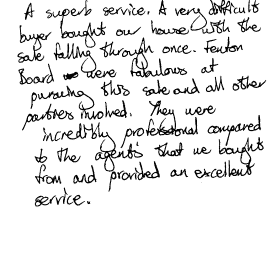 A superb service. A very difficult
buyer bought our house with the
sale falling through once. Fenton
Board were fabulous at
pursuing this sale and all other
parties involved. They were
incredibly professional compared
to the agents that we bought
from and provided an excellent
service.